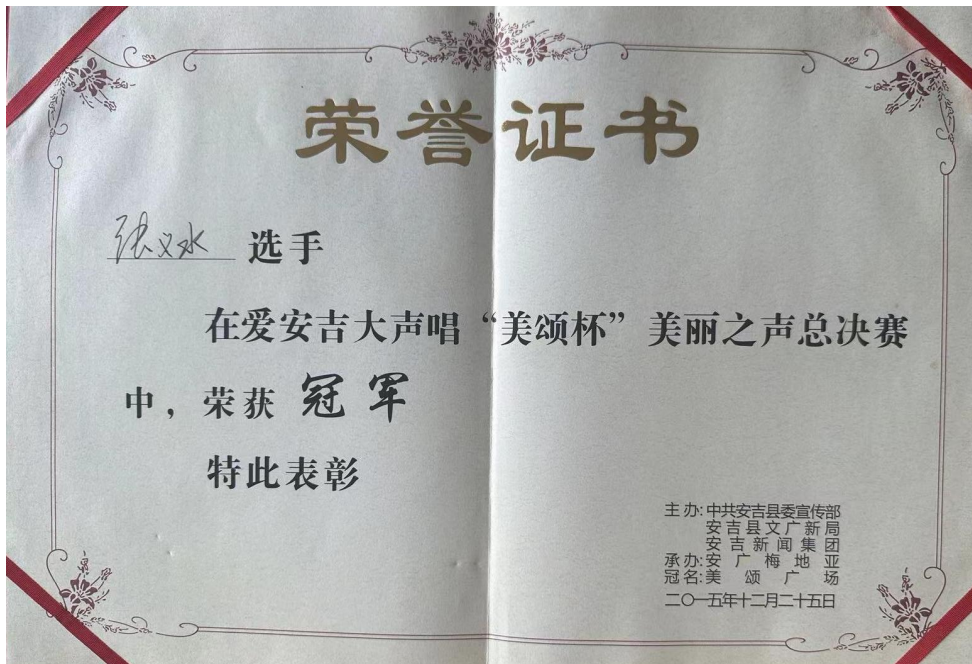 荣誉证书
张义水 选手
在爱安吉大声唱“美颂杯”美丽之声总决赛
中，荣获 冠军
特此表彰
主办:中共安吉县委宣传部
安吉县文广新局
安吉新闻集团
承办:安广梅地亚
冠名:美颂广场
二〇一五年十二月二十五日